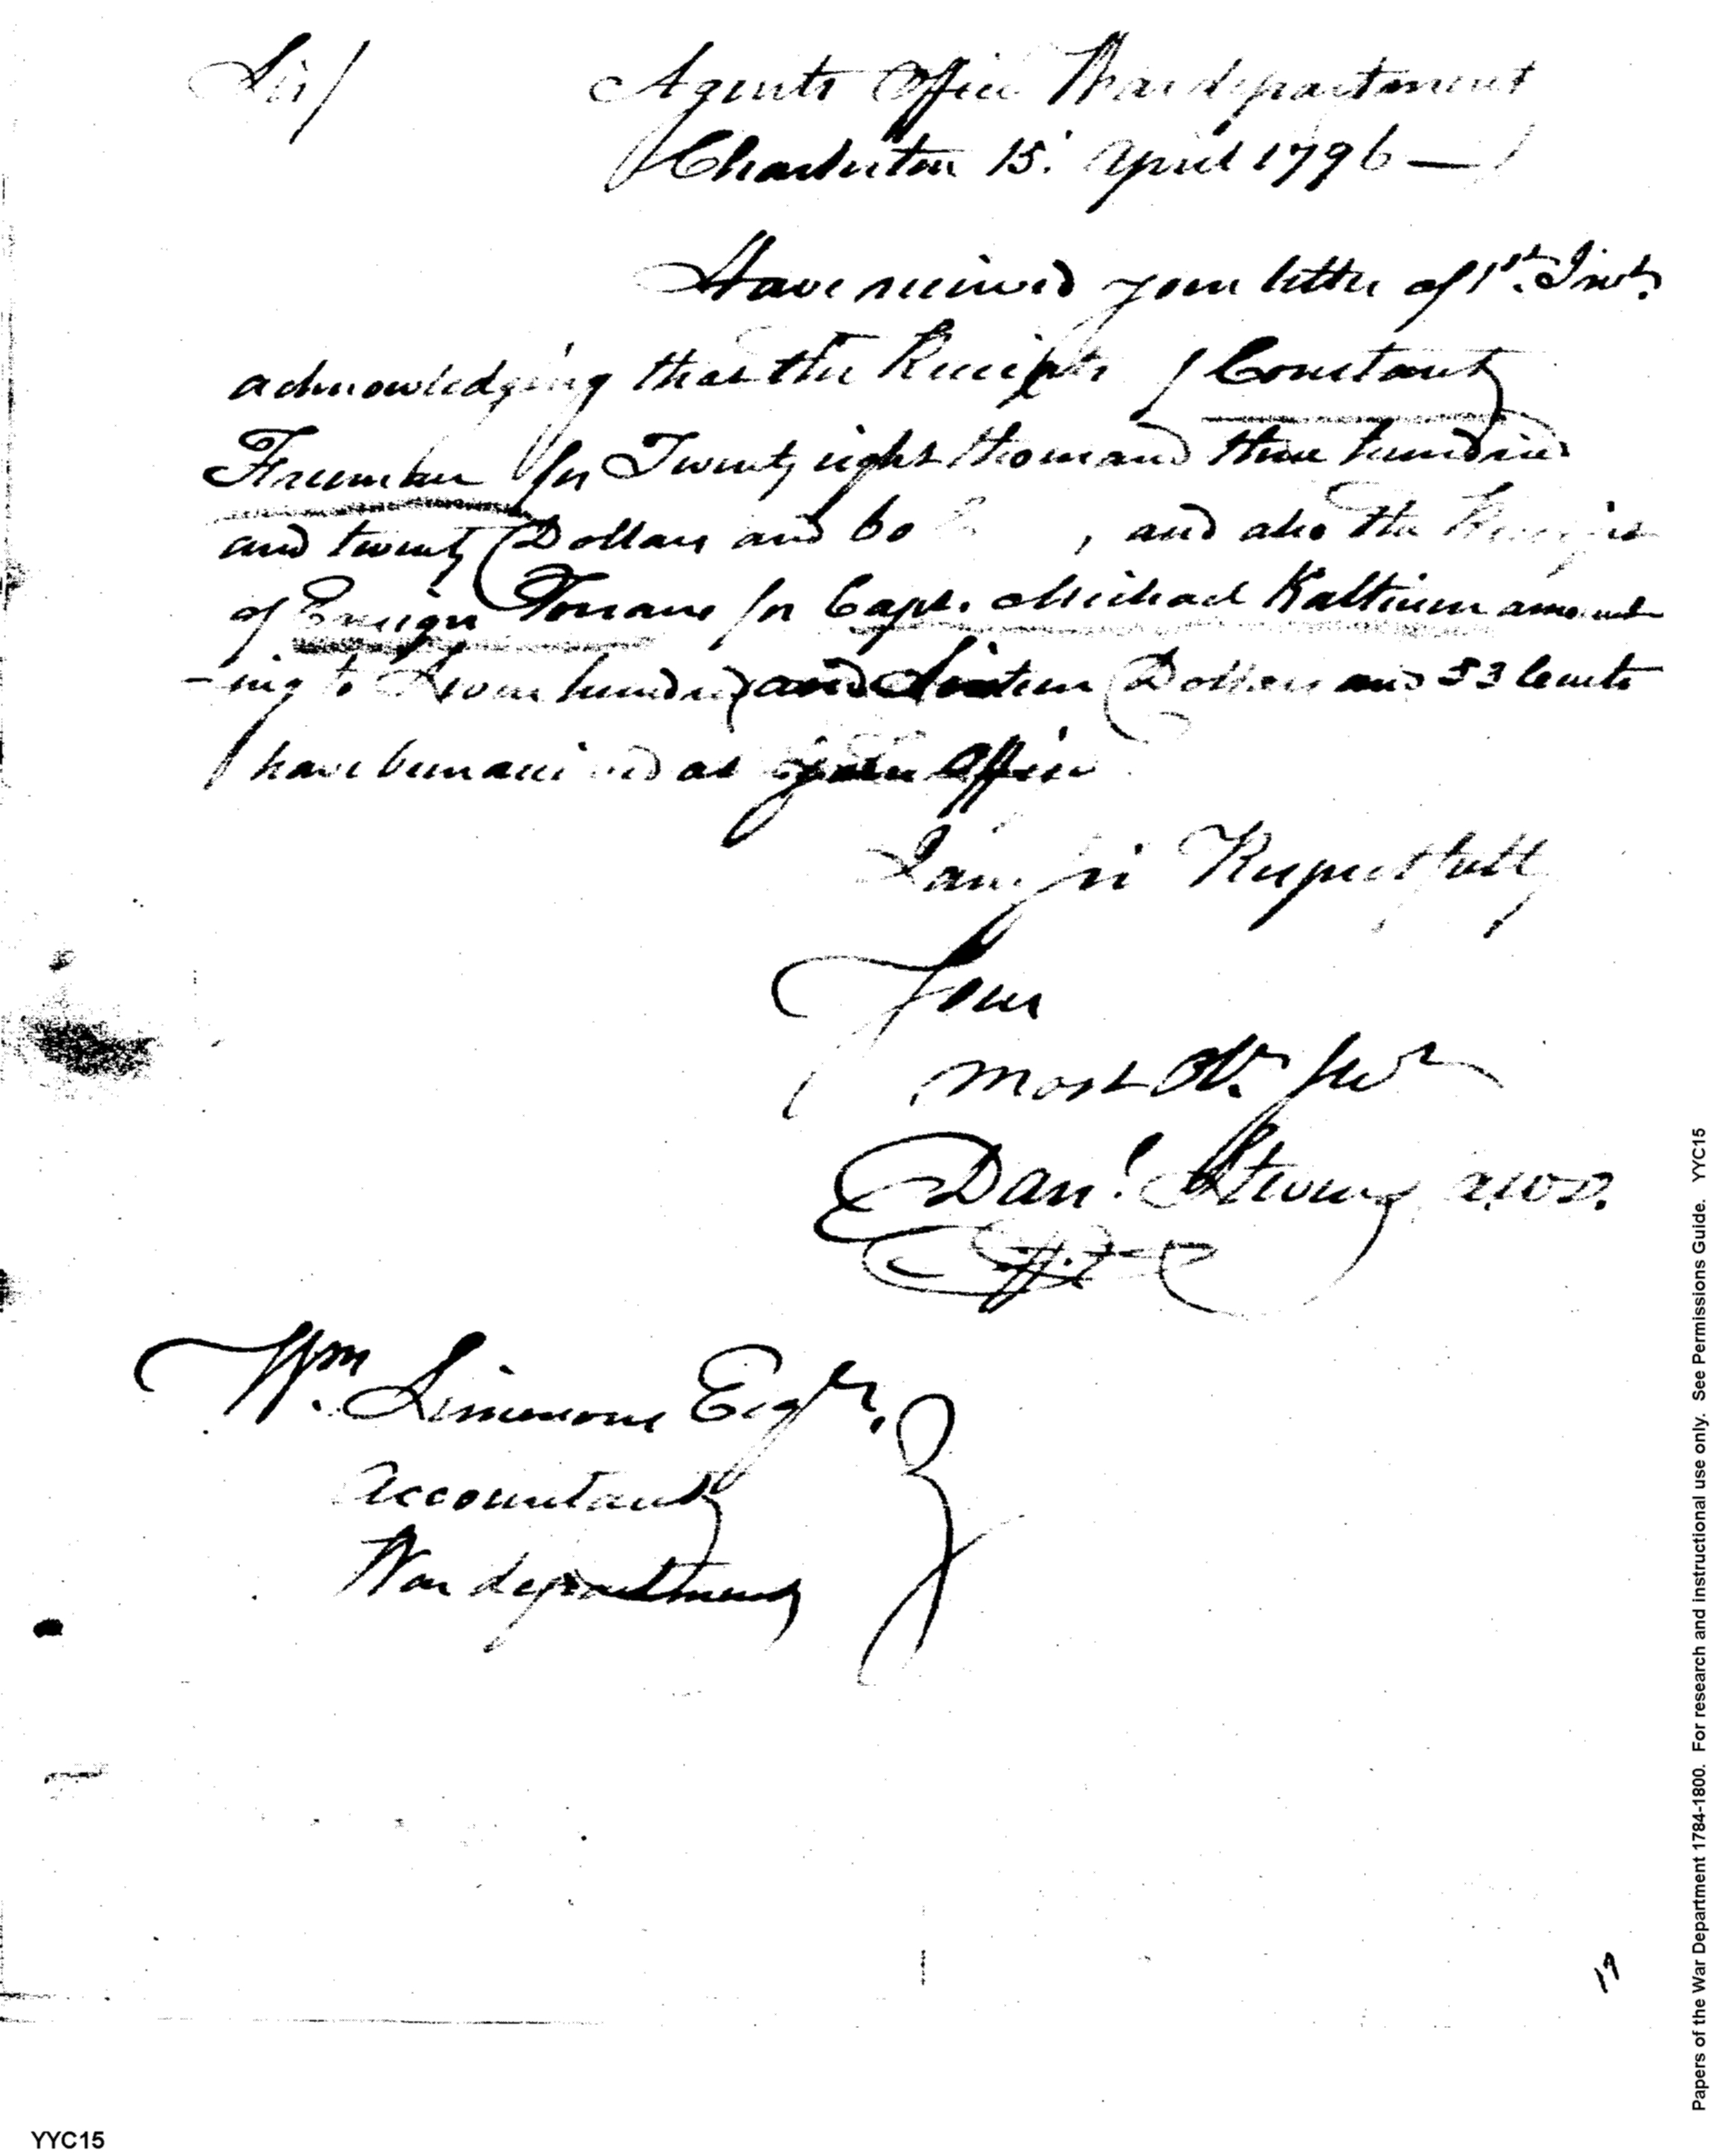 Sir/ Agents Office War department
Charleston 15. April 1796 —
Have received your letter of 1st. Inst.
acknowledging that the Receipts of Constant
Freeman for Twenty eight thousand three hundred
and twenty Dollars and 60 , and also the
of Ensign for Capt. Michael Kalteisen amount
-ing to Seven hundred and Sixteen Dollars and 53 Cents
have been received at your Office
I am Sir Respectfully
Your
most Obt. Servt
Danl. Stevens A.W.D.
Wm. Simmons Esqr.
Accountant
War department
19
Papers of the War Department 1784-1800. For research and instructional use only. See Permissions Guide. YYC15
YYC15